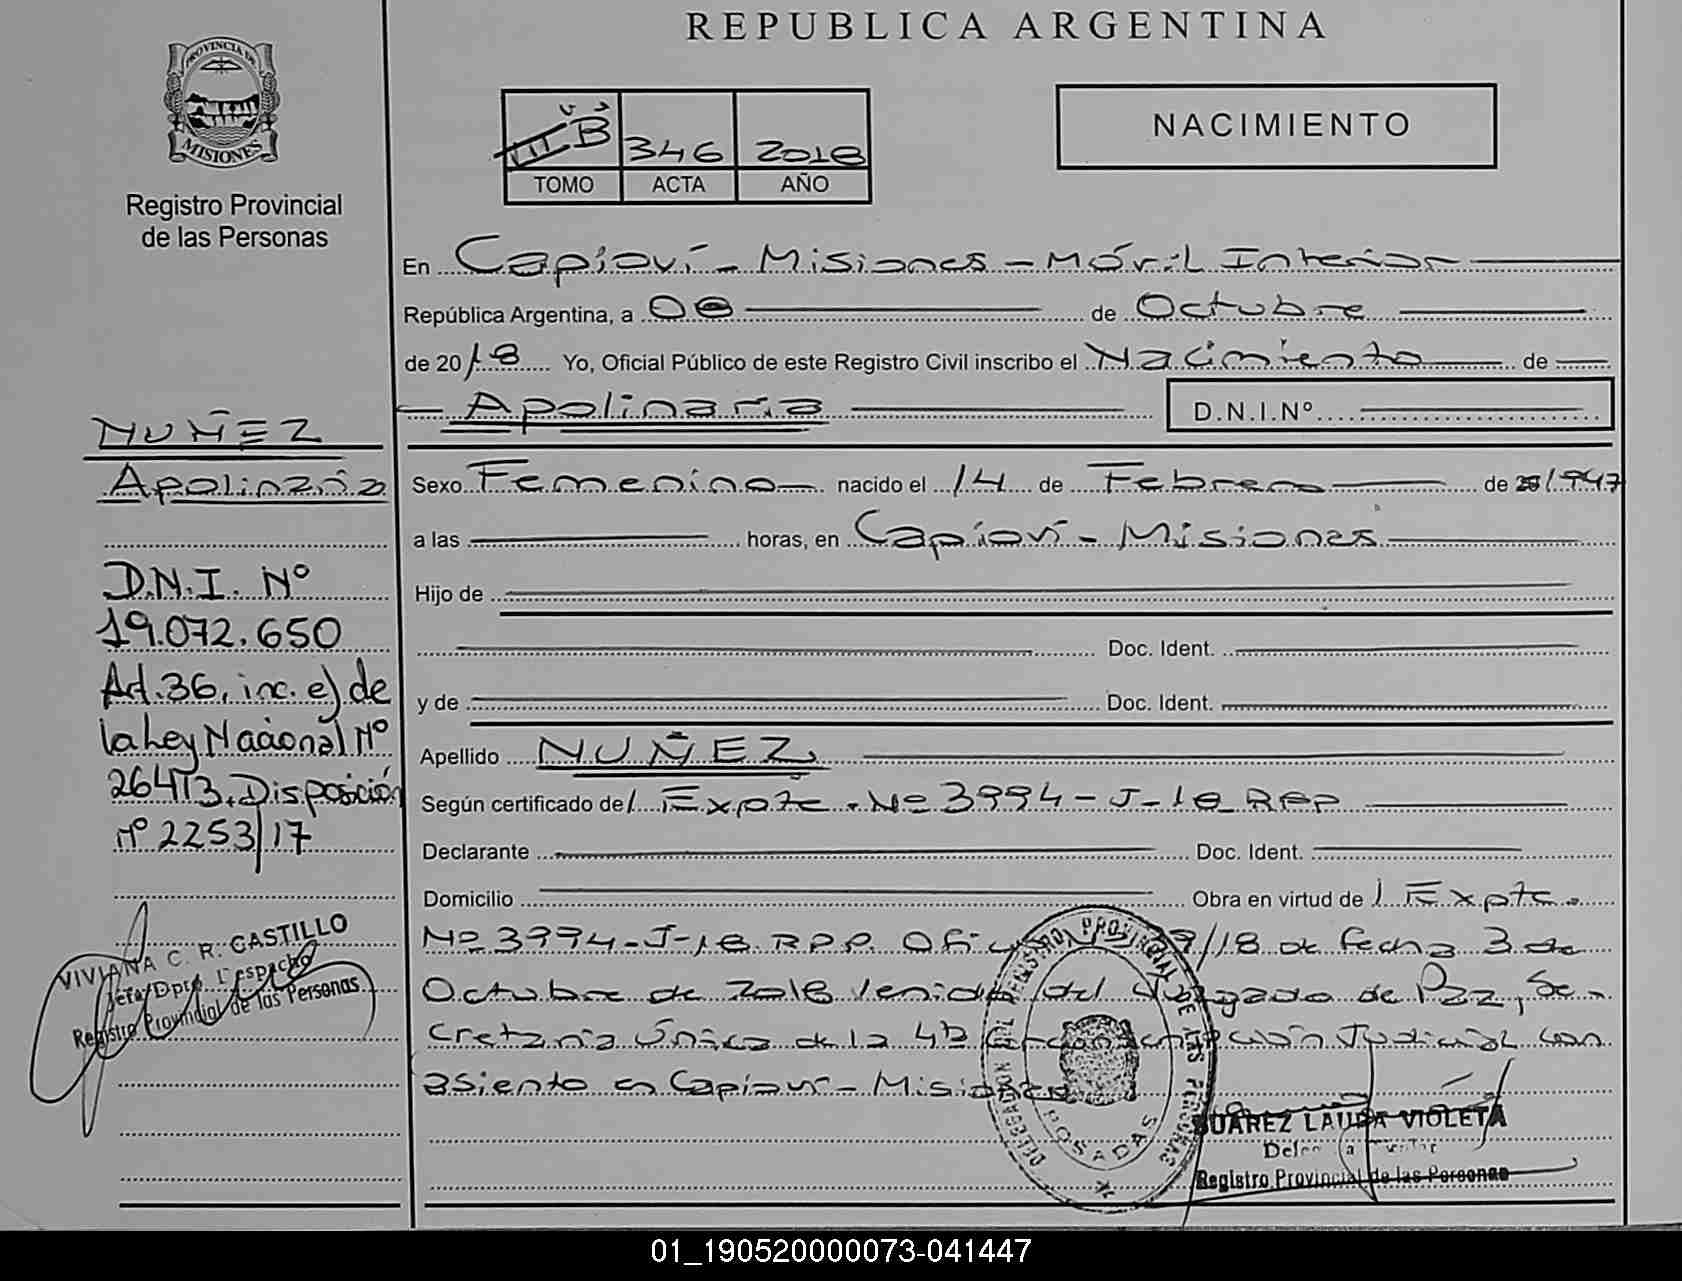 REPUBLICA ARGENTINA
PROVINCIA DE
MISIONES
Registro Provincial
de las Personas
B 346 2018
TOMO ACTA AÑO
NACIMIENTO
En Capioví - Misiones - Móvil Interior
República Argentina, a 08 de Octubre
de 2018 Yo, Oficial Público de este Registro Civil inscribo el Nacimiento de
Apolinaria D.N.I.Nº
NUÑEZ
Apolinaria
D.N.I. Nº
19.072.650
Art.36, inc. e) de
la Ley Nacional Nº
26413, Disposición
nº 2253/17
VIVIANA C. R. CASTILLO
Jefa Dpto. Despacho
Registro Provincial de las Personas
Sexo Femenino nacido el 14 de Febrero de 1947
a las horas, en Capioví - Misiones
Hijo de
Doc. Ident.
y de Doc. Ident.
Apellido NUÑEZ
Según certificado de/ Expte. Nº 3994-J-18 RPP
Declarante Doc. Ident.
Domicilio Obra en virtud de / Expte.
Nº 3994-J-18 RPP. 9/18 de fecha 3 de
Octubre de 2018 venido del Juzgado de Paz, Se-
cretaria Única de la 4ta Circunscripción Judicial con
asiento en Capioví - Misiones
DELEGACION REGISTRO PROVINCIAL DE LAS PERSONAS
POSADAS
SUAREZ LAURA VIOLETA
Registro Provincial de las Personas
01_190520000073-041447